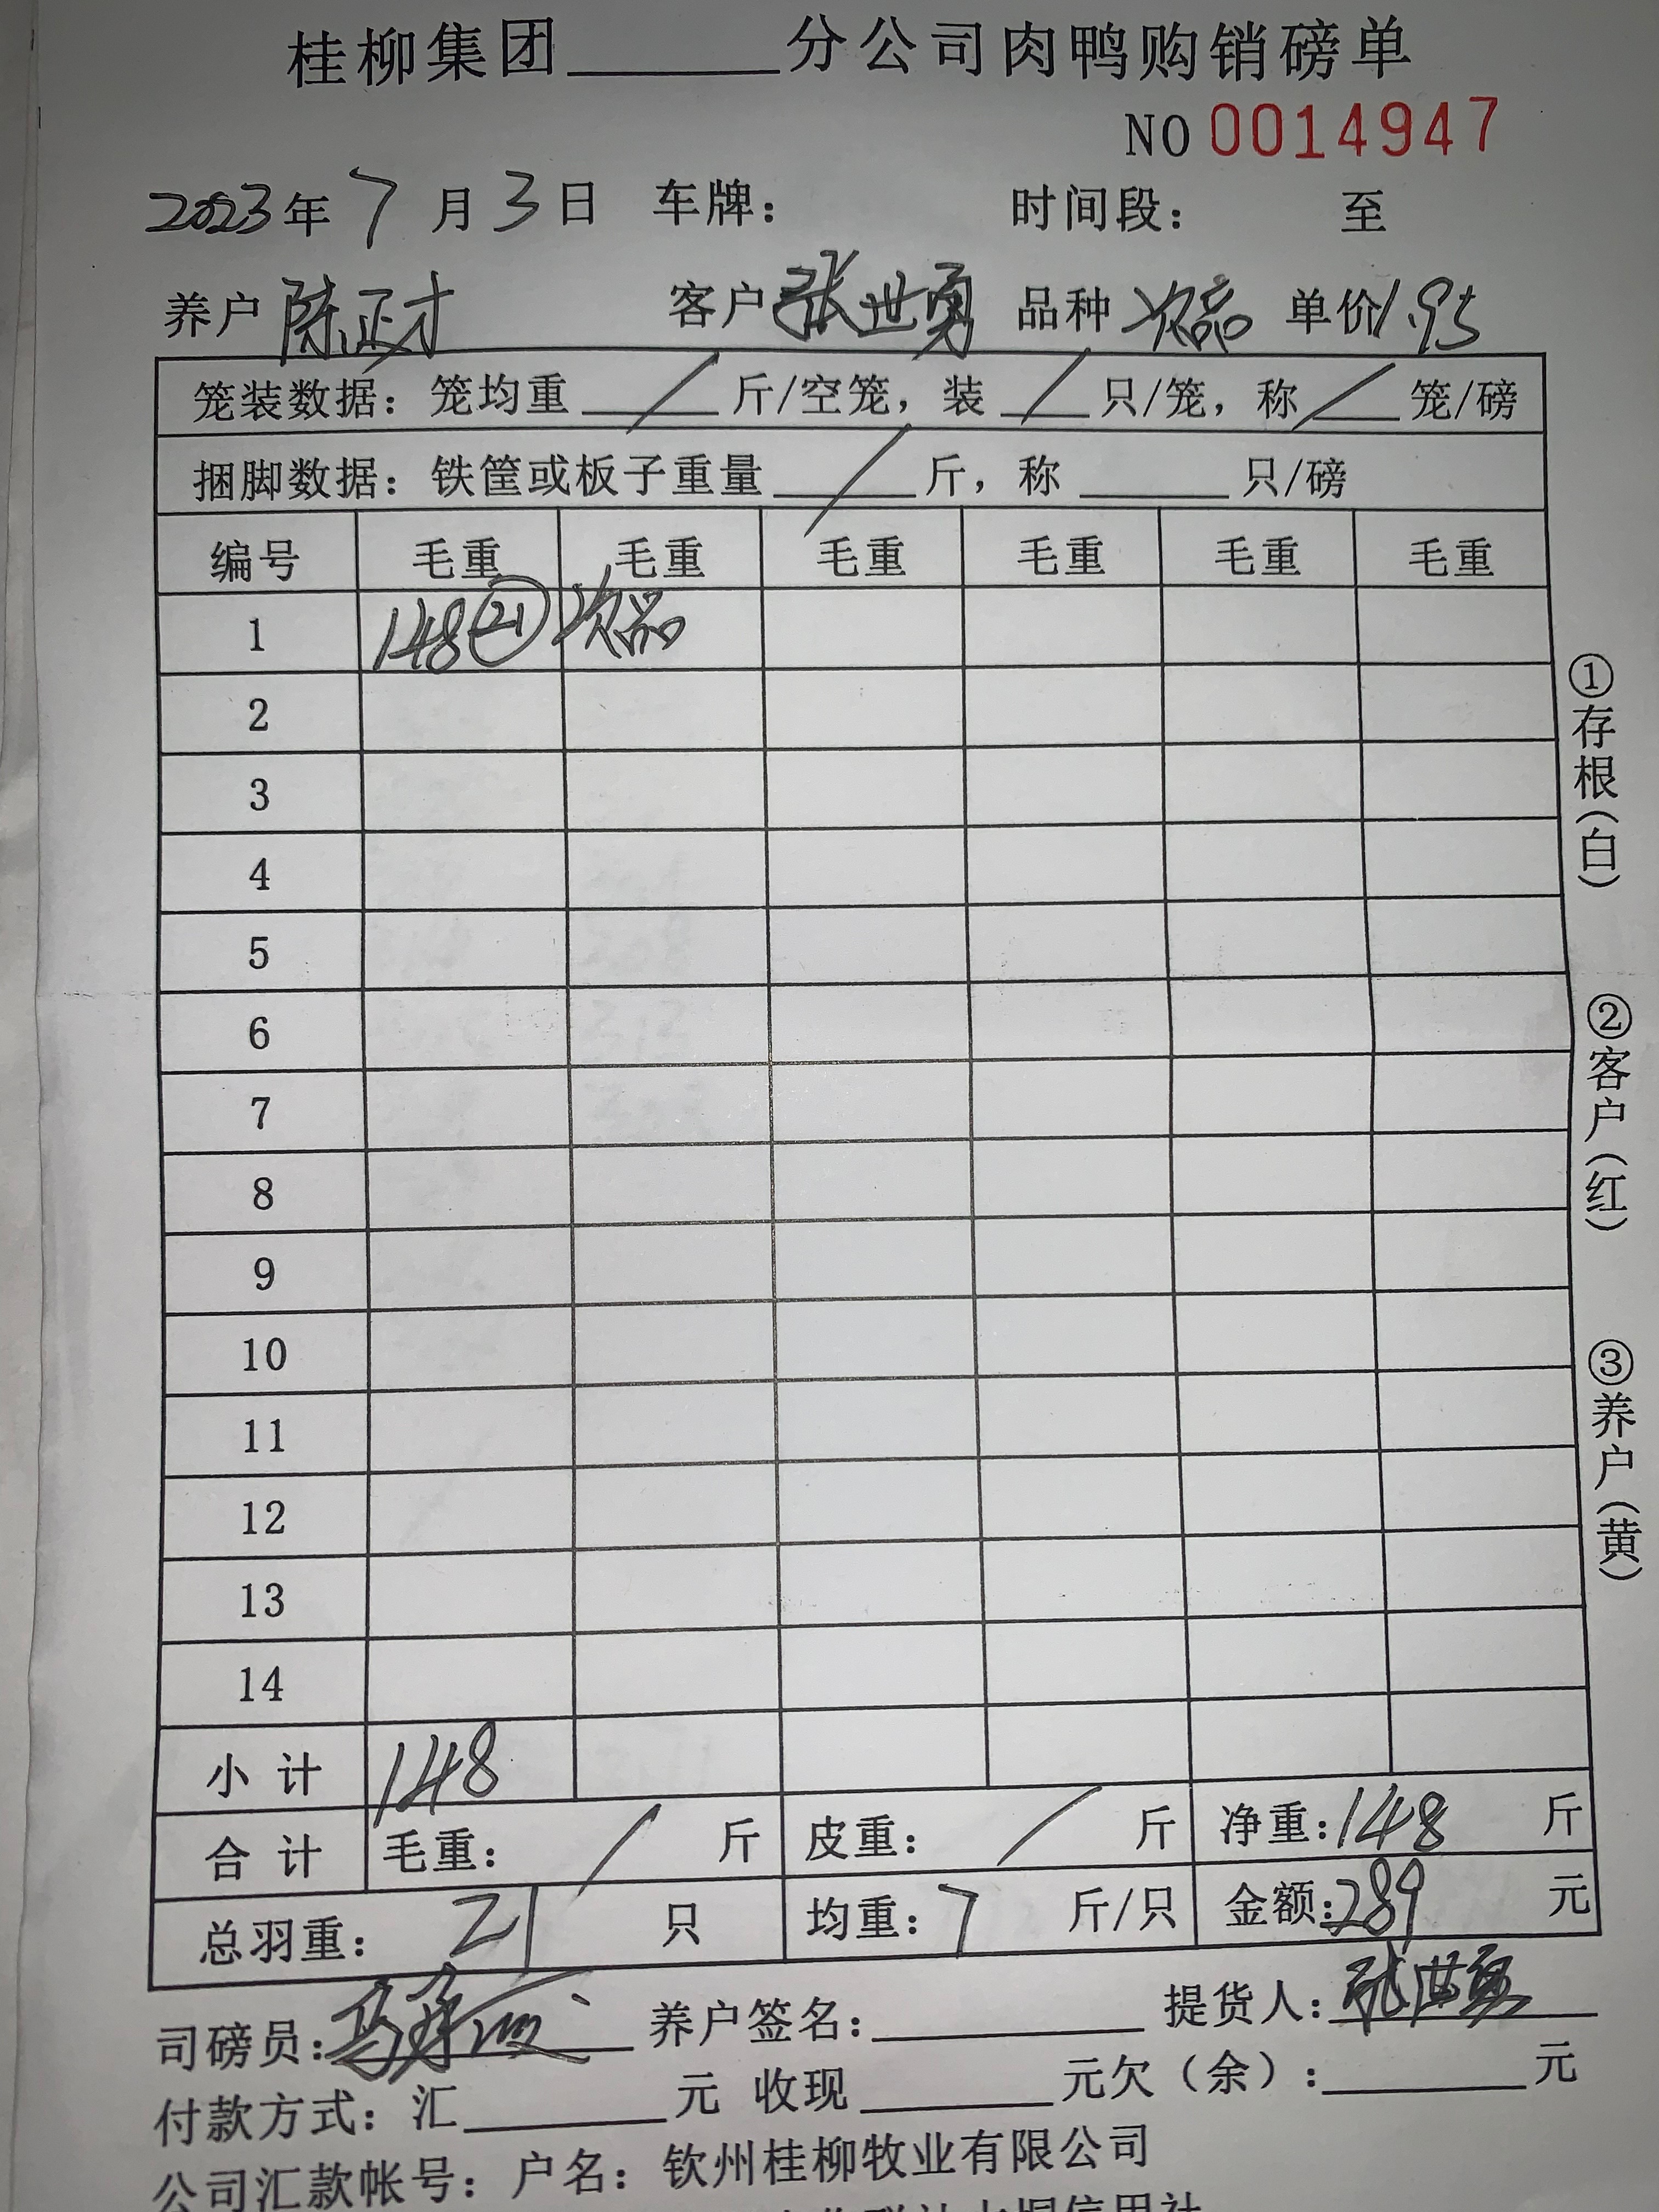 桂柳集团______分公司肉鸭购销磅单
NO 0014947
2023年 7 月 3 日 车牌: 时间段: 至
养户 陈正才 客户 张世勇 品种 次品 单价 1.95
笼装数据: 笼均重 / 斤/空笼, 装 / 只/笼, 称 / 笼/磅
捆脚数据: 铁筐或板子重量 / 斤, 称______只/磅
编号 毛重 毛重 毛重 毛重 毛重 毛重
1 148 (21) 次品
2
3
4
5
6
7
8
9
10
11
12
13
14
小计 148
合计 毛重: / 斤 皮重: / 斤 净重: 148 斤
总羽重: 21 只 均重: 7 斤/只 金额: 289 元
司磅员: 养户签名:______ 提货人: 张世勇
付款方式: 汇______元 收现______元欠(余):______元
公司汇款帐号: 户名: 钦州桂柳牧业有限公司
①存根(白)
②客户(红)
③养户(黄)